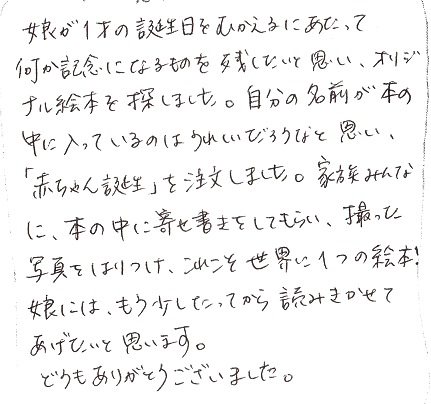 娘が1才の誕生日をむかえるにあたって
何か記念になるものを残したいと思い、オリジ
ナル絵本を探しました。自分の名前が本の
中に入っているのはうれしいだろうなと思い、
「赤ちゃん誕生」を注文しました。家族みんな
に、本の中に寄せ書きをしてもらい、撮った
写真をはりつけ、これこそ世界に1つの絵本!
娘には、もう少したってから読みきかせて
あげたいと思います。
どうもありがとうございました。